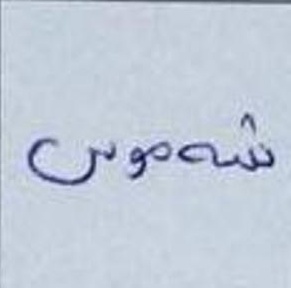 شەموس